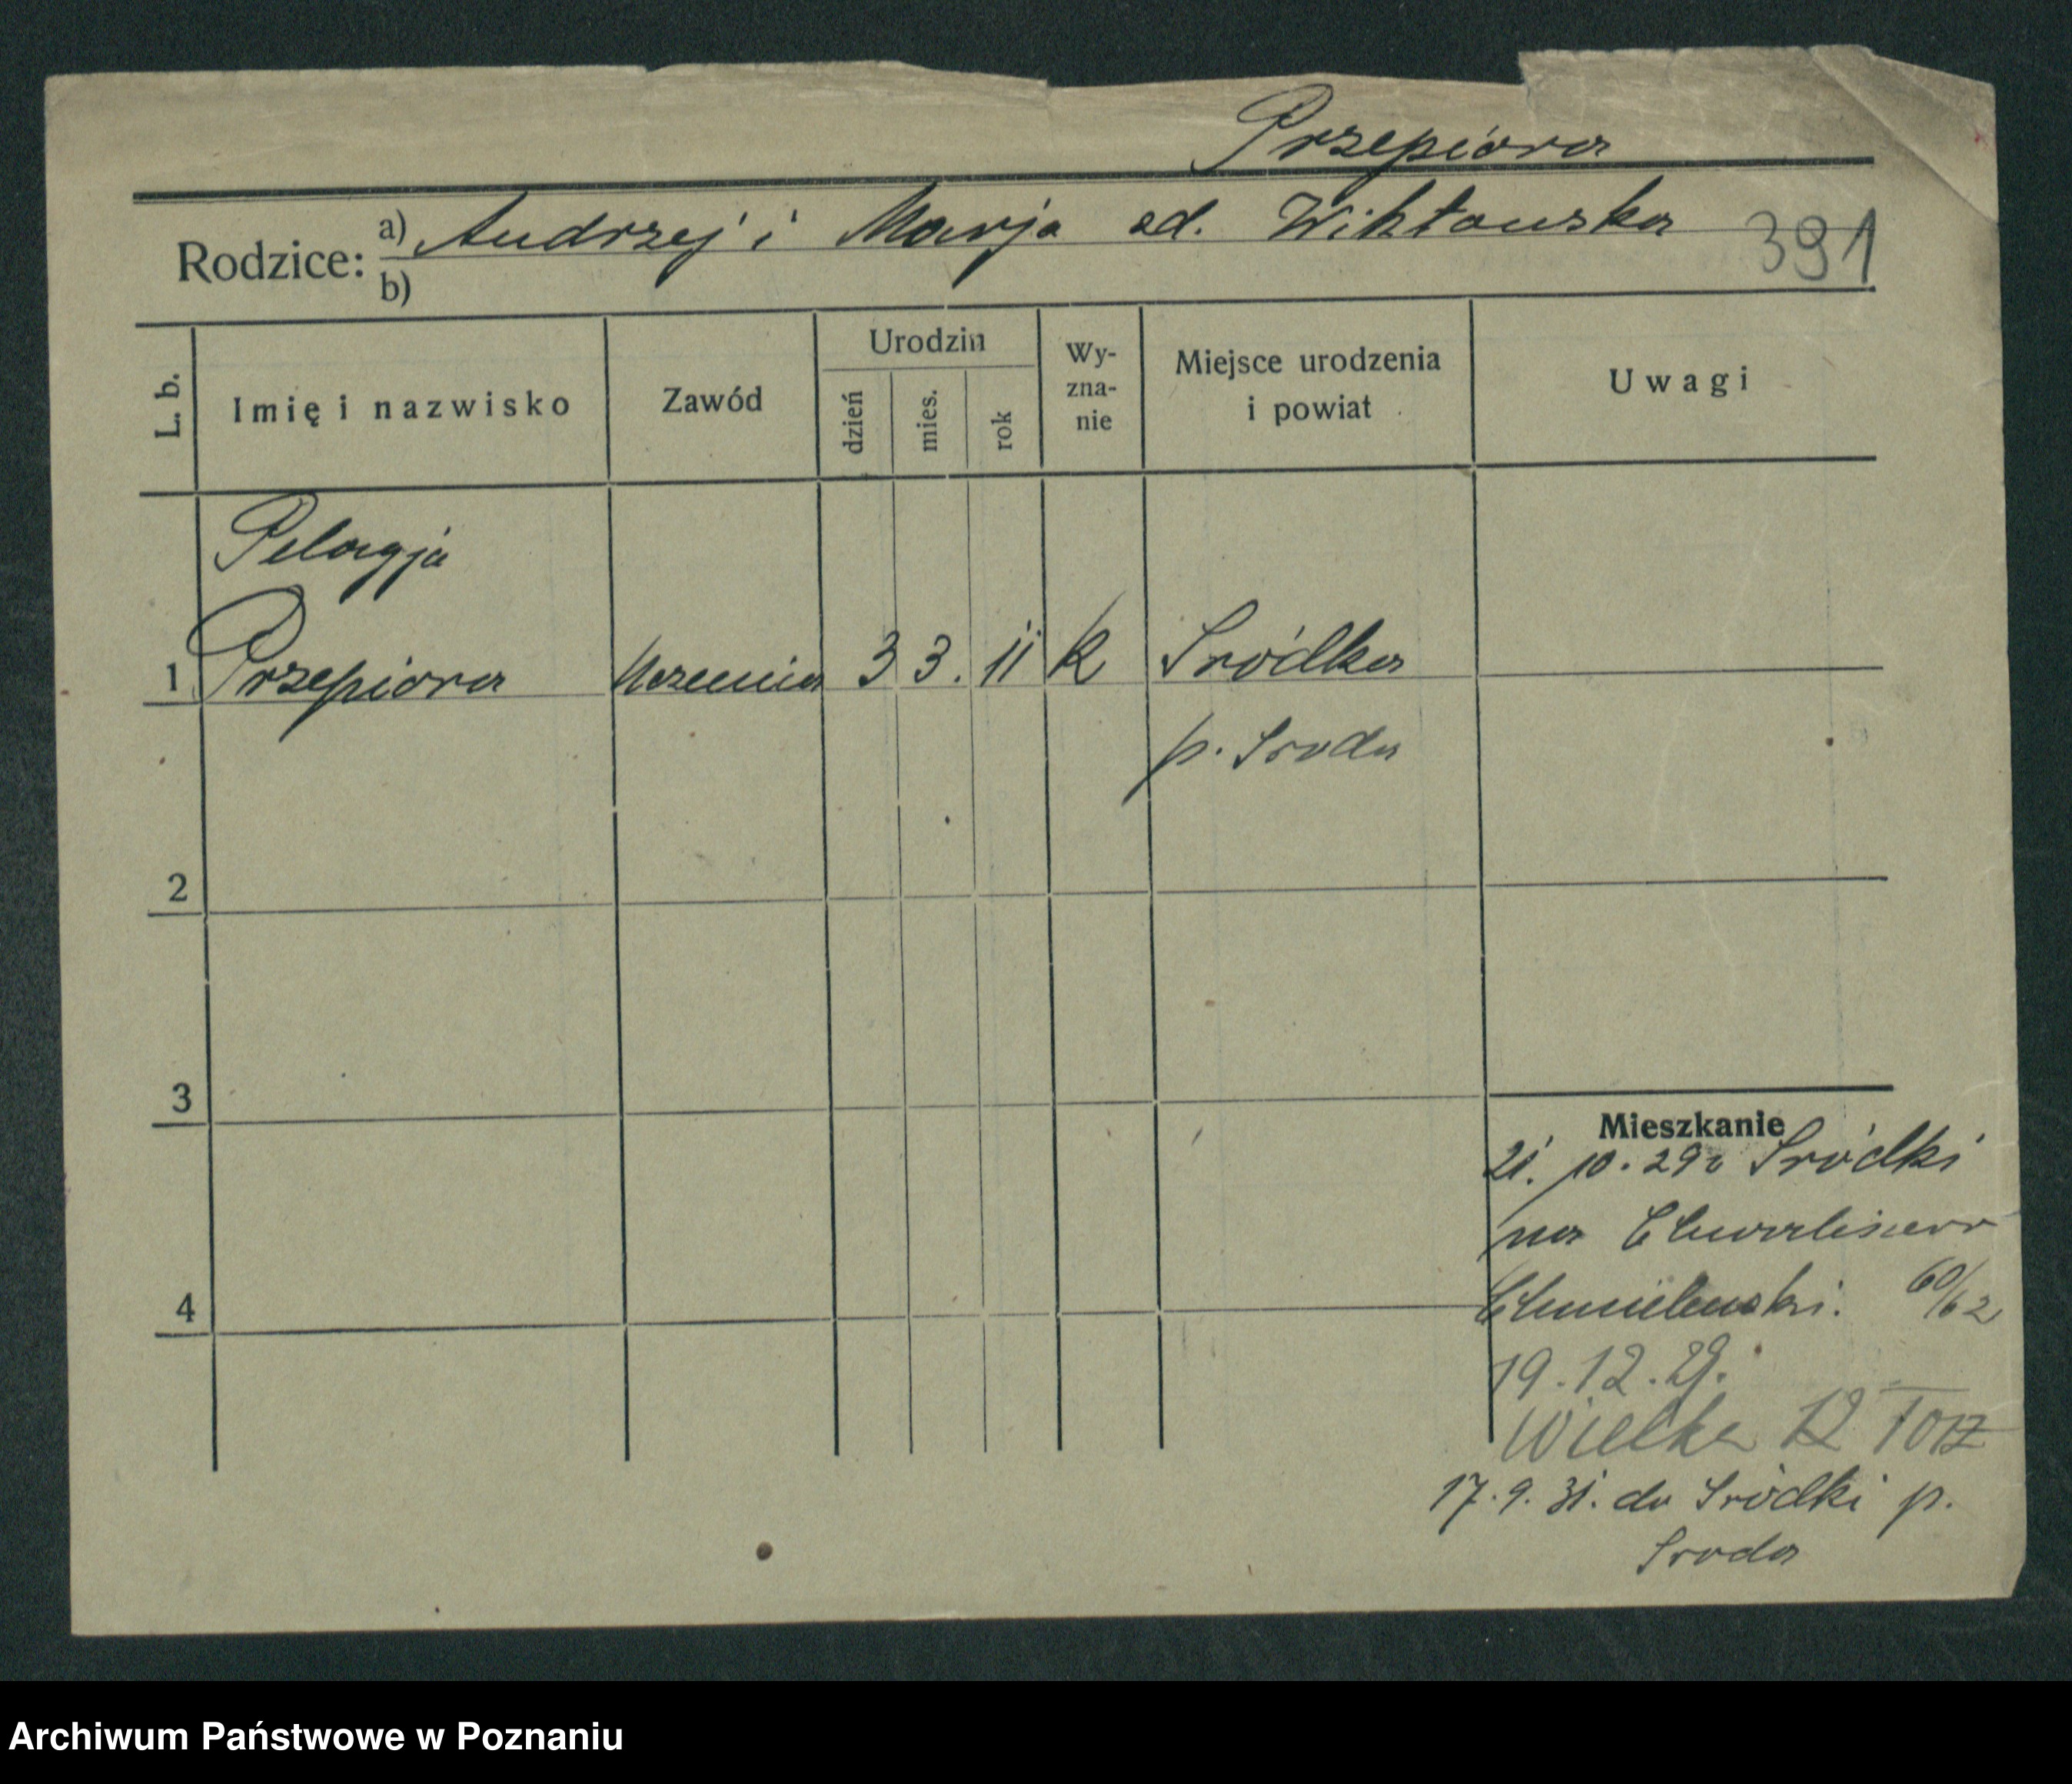 Przepióra
Rodzice: a) Andrzej i Marja zd. Wiktowska 391
b)
L. b. Imię i nazwisko Zawód Urodzin dzień mies. rok Wy-zna-nie Miejsce urodzenia i powiat Uwagi
Pelagja
1 Przepióra Uczennica 3 3. 11 k Śródka
p. Środa
2
3
Mieszkanie
21. 10. 29 z Śródki
na Chwaliszewo
4 Chmielewski. 60/62
19.12.29.
Wielka 12
17.9.31. do Śródki p.
Środa
Archiwum Państwowe w Poznaniu